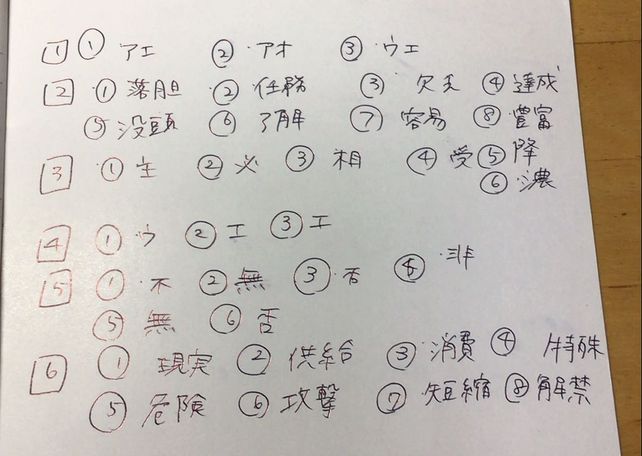 1 ① アエ ② アオ ③ ウエ
2 ① 落胆 ② 任務 ③ 欠乏 ④ 達成
⑤ 没頭 ⑥ 了解 ⑦ 容易 ⑧ 豊富
3 ① 主 ② 必 ③ 相 ④ 受 ⑤ 降
⑥ 濃
4 ① ウ ② エ ③ エ
5 ① 不 ② 無 ③ 否 ④ 非
⑤ 無 ⑥ 否
6 ① 現実 ② 供給 ③ 消費 ④ 特殊
⑤ 危険 ⑥ 攻撃 ⑦ 短縮 ⑧ 解禁